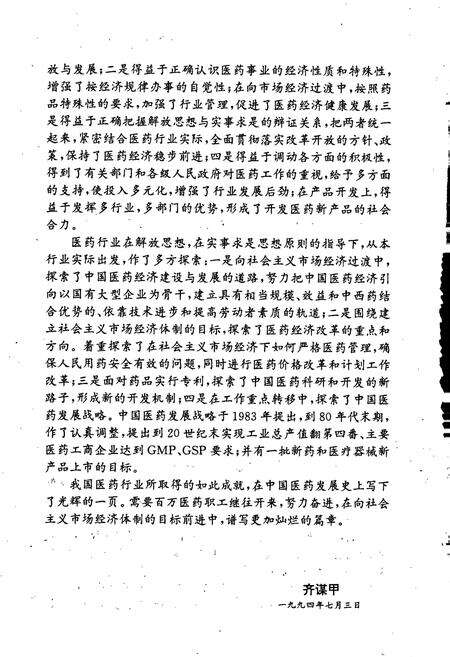 放与发展;二是得益于正确认识医药事业的经济性质和特殊性,
增强了按经济规律办事的自觉性;在向市场经济过渡中,按照药
品特殊性的要求,加强了行业管理,促进了医药经济健康发展;三
是得益于正确把握解放思想与实事求是的辩证关系,把两者统一
起来,紧密结合医药行业实际,全面贯彻落实改革开放的方针、政
策,保持了医药经济稳步前进;四是得益于调动各方面的积极性,
得到了有关部门和各级人民政府对医药工作的重视,给予多方面
的支持,使投入多元化,增强了行业发展后劲;在产品开发上,得
益于发挥多行业,多部门的优势,形成了开发医药新产品的社会
合力。
医药行业在解放思想,在实事求是思想原则的指导下,从本
行业实际出发,作了多方探索:一是向社会主义市场经济过渡中,
探索了中国医药经济建设与发展的道路,努力把中国医药经济引
向以国有大型企业为骨干,建立具有相当规模、效益和中西药结
合优势的、依靠技术进步和提高劳动者素质的轨道;二是围绕建
立社会主义市场经济体制的目标,探索了医药经济改革的重点和
方向。着重探索了在社会主义市场经济下如何严格医药管理,确
保人民用药安全有效的问题,同时进行医药价格改革和计划工作
改革;三是面对药品实行专利,探索了中国医药科研和开发的新
路子,形成新的开发机制;四是在工作重点转移中,探索了中国医
药发展战略。中国医药发展战略于1983年提出,到80年代末期,
作了认真调整,提出到20世纪末实现工业总产值翻第四番、主要
医药工商企业达到GMP、GSP要求;并有一批新药和医疗器械新
产品上市的目标。
我国医药行业所取得的如此成就,在中国医药发展史上写下
了光辉的一页。需要百万医药职工继往开来,努力奋进,在向社会
主义市场经济体制的目标前进中,谱写更加灿烂的篇章。
齐谋甲
一九九四年七月三日